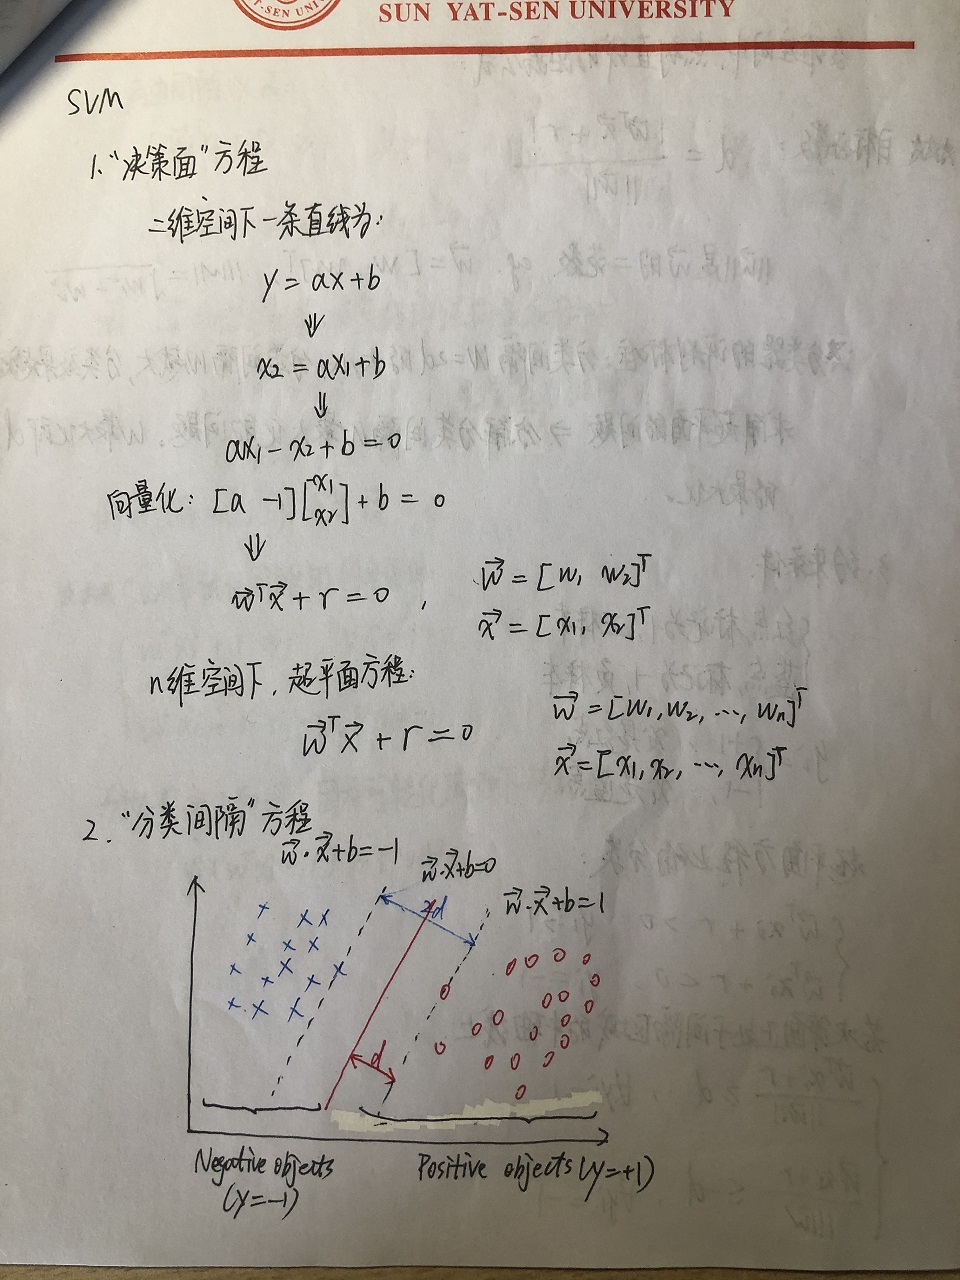 SUN YAT-SEN UNIVERSITY
SVM
1. “决策面”方程
二维空间下一条直线为:
y = ax+b
⇓
x2 = ax1+b
⇓
ax1 - x2 + b = 0
向量化: [a -1][x1 x2] + b = 0
⇓
w⃗ᵀx⃗ + r = 0 ,
w⃗ = [w1, w2]ᵀ
x⃗ = [x1, x2]ᵀ
n维空间下, 超平面方程:
w⃗ᵀx⃗ + r = 0
w⃗ = [w1, w2, ..., wn]ᵀ
x⃗ = [x1, x2, ..., xn]ᵀ
2. “分类间隔”方程
w⃗·x⃗+b=-1
w⃗·x⃗+b=0
w⃗·x⃗+b=1
2d
d
Negative objects
(y=-1)
Positive objects (y=+1)